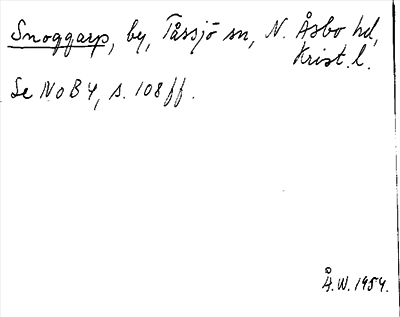 Snoggarp, by, Tåssjö sn, N. Åsbo hd,
Krist. l.
Se NoB 4, s. 108 ff.
Å.W. 1954.